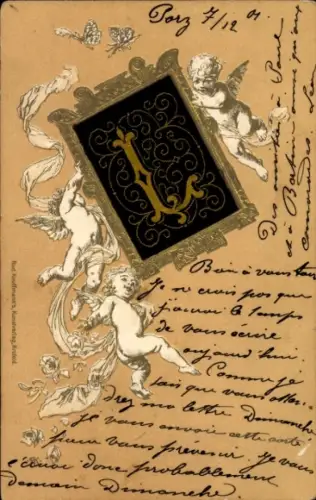 Porz 7/12 01.
L
Des amitiés à Paul
et à Barbier ainsi qu'aux
Bien à vous tous
Je ne crois pas que
j'aurai le temps
de vous écrire
aujourd'hui.
Comme je
sais que vous atten-
drez ma lettre Dimanche
je vous envoie cette carte
pour vous prévenir. Je vous
écrirai donc probablement
demain Dimanche